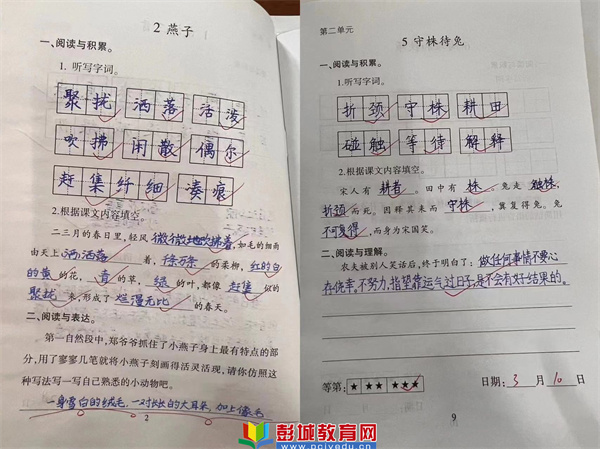 2 燕子
一、阅读与积累。
1. 听写字词。
聚拢 洒落 活泼
吹拂 闲散 偶尔
赶集 纤细 凑痕
2.根据课文内容填空。
二三月的春日里，轻风微微地吹拂着，如毛的细雨
由天上洒洒落着，条条的柔柳，红的白
的黄的花，青的草，绿的叶，都像赶集似的
聚拢来，形成了烂漫无比的春天。
二、阅读与表达。
第一自然段中，郑爷爷抓住了小燕子身上最有特点的部
分，用了寥寥几笔就将小燕子刻画得活灵活现，请你仿照这
种写法写一写自己熟悉的小动物吧。
一身雪白的绒毛，一对长长的大耳朵，加上像毛
2
第二单元
5 守株待兔
一、阅读与积累。
1.听写字词。
折颈 守株 耕田
碰触 等待 解释
2.根据课文内容填空。
宋人有耕者。田中有株。兔走触株，
折颈而死。因释其耒而守株，冀复得兔。兔
不可复得，而身为宋国笑。
二、阅读与理解。
农夫被别人笑话后，终于明白了：做任何事情不要心
存侥幸。不努力，指望靠运气过日子，是不会有好结果的。
等第：★★★★★★
日期：3月10日
9
彭城教育网